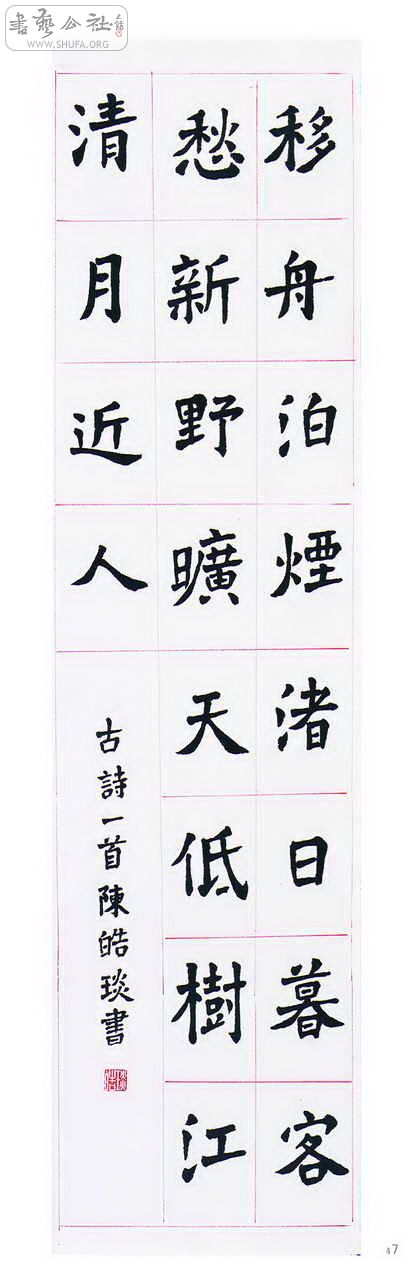 書藝公社
WWW.SHUFA.ORG
移舟泊煙渚日暮客
愁新野曠天低樹江
清月近人
古詩一首陳皓琰書
47